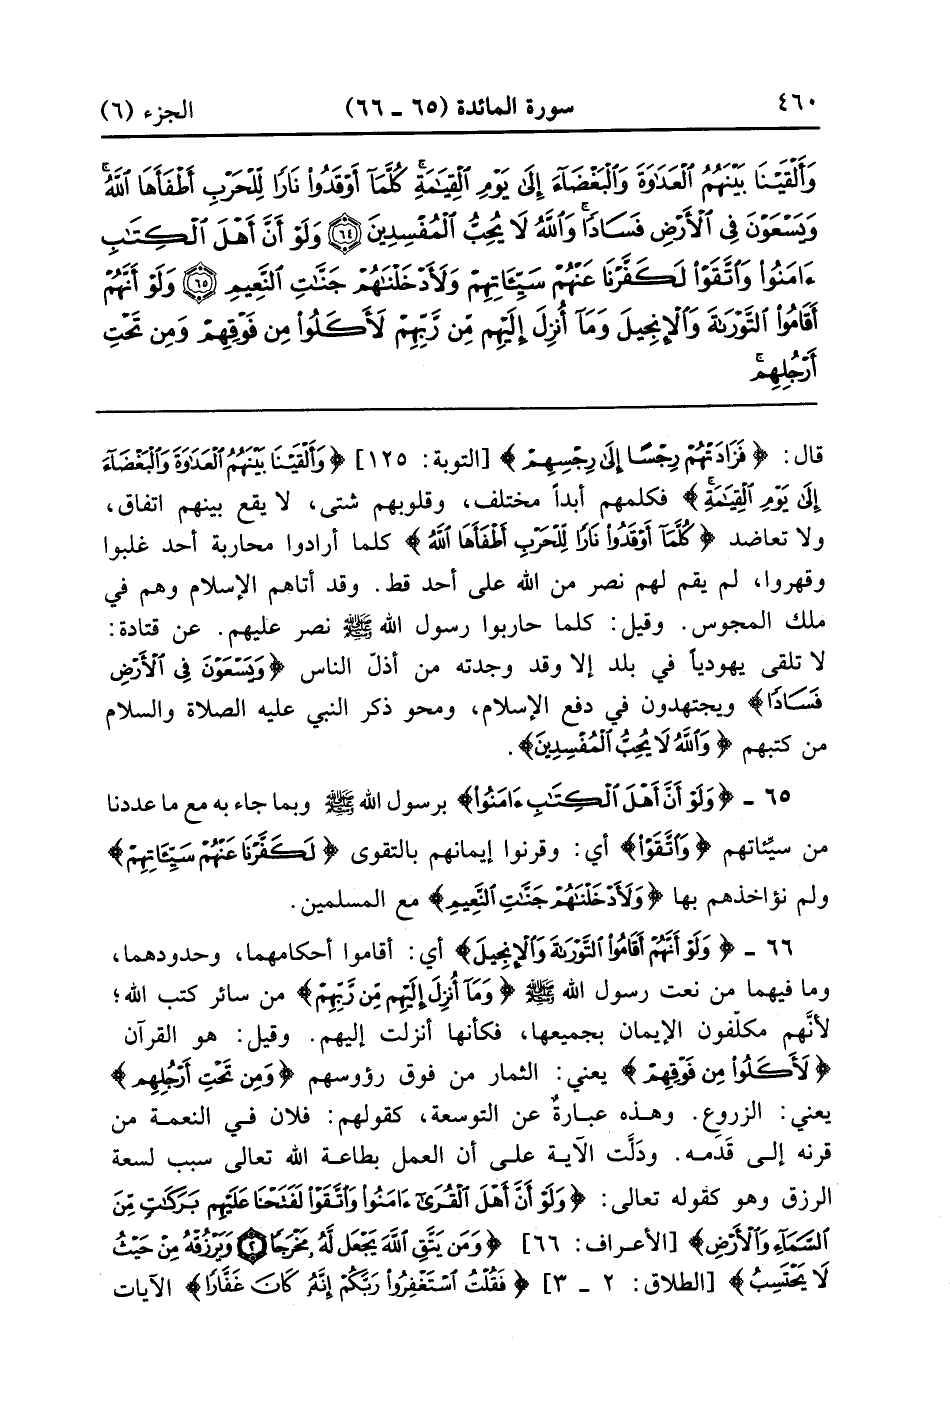 ٤٦٠ سورة المائدة (٦٥ ـ ٦٦) الجزء (٦)
وَأَلْقَيْنَا بَيْنَهُمُ الْعَدَاوَةَ وَالْبَغْضَاءَ إِلَى يَوْمِ الْقِيَامَةِ كُلَّمَا أَوْقَدُوا نَارًا لِلْحَرْبِ أَطْفَأَهَا اللَّهُ
وَيَسْعَوْنَ فِي الْأَرْضِ فَسَادًا وَاللَّهُ لَا يُحِبُّ الْمُفْسِدِينَ ٦٤ وَلَوْ أَنَّ أَهْلَ الْكِتَابِ
ءَامَنُوا وَاتَّقَوْا لَكَفَّرْنَا عَنْهُمْ سَيِّئَاتِهِمْ وَلَأَدْخَلْنَاهُمْ جَنَّاتِ النَّعِيمِ ٦٥ وَلَوْ أَنَّهُمْ
أَقَامُوا التَّوْرَاةَ وَالْإِنْجِيلَ وَمَا أُنْزِلَ إِلَيْهِمْ مِنْ رَبِّهِمْ لَأَكَلُوا مِنْ فَوْقِهِمْ وَمِنْ تَحْتِ
أَرْجُلِهِمْ
قال: ﴿فَزَادَتْهُمْ رِجْسًا إِلَى رِجْسِهِمْ﴾ [التوبة: ١٢٥] ﴿وَأَلْقَيْنَا بَيْنَهُمُ الْعَدَاوَةَ وَالْبَغْضَاءَ
إِلَى يَوْمِ الْقِيَامَةِ﴾ فكلمهم أبداً مختلف، وقلوبهم شتى، لا يقع بينهم اتفاق،
ولا تعاضد ﴿كُلَّمَا أَوْقَدُوا نَارًا لِلْحَرْبِ أَطْفَأَهَا اللَّهُ﴾ كلما أرادوا محاربة أحد غلبوا
وقهروا، لم يقم لهم نصر من الله على أحد قط. وقد أتاهم الإسلام وهم في
ملك المجوس. وقيل: كلما حاربوا رسول الله ﷺ نصر عليهم. عن قتادة:
لا تلقى يهودياً في بلد إلا وقد وجدته من أذلّ الناس ﴿وَيَسْعَوْنَ فِي الْأَرْضِ
فَسَادًا﴾ ويجتهدون في دفع الإسلام، ومحو ذكر النبي عليه الصلاة والسلام
من كتبهم ﴿وَاللَّهُ لَا يُحِبُّ الْمُفْسِدِينَ﴾.
٦٥ ـ ﴿وَلَوْ أَنَّ أَهْلَ الْكِتَابِ ءَامَنُوا﴾ برسول الله ﷺ وبما جاء به مع ما عددنا
من سيّئاتهم ﴿وَاتَّقَوْا﴾ أي: وقرنوا إيمانهم بالتقوى ﴿لَكَفَّرْنَا عَنْهُمْ سَيِّئَاتِهِمْ﴾
ولم نؤاخذهم بها ﴿وَلَأَدْخَلْنَاهُمْ جَنَّاتِ النَّعِيمِ﴾ مع المسلمين.
٦٦ ـ ﴿وَلَوْ أَنَّهُمْ أَقَامُوا التَّوْرَاةَ وَالْإِنْجِيلَ﴾ أي: أقاموا أحكامهما، وحدودهما،
وما فيهما من نعت رسول الله ﷺ ﴿وَمَا أُنْزِلَ إِلَيْهِمْ مِنْ رَبِّهِمْ﴾ من سائر كتب الله؛
لأنَّهم مكلّفون الإيمان بجميعها، فكأنها أنزلت إليهم. وقيل: هو القرآن
﴿لَأَكَلُوا مِنْ فَوْقِهِمْ﴾ يعني: الثمار من فوق رؤوسهم ﴿وَمِنْ تَحْتِ أَرْجُلِهِمْ﴾
يعني: الزروع. وهذه عبارةٌ عن التوسعة، كقولهم: فلان في النعمة من
قرنه إلى قَدَمه. ودَلَّت الآية على أن العمل بطاعة الله تعالى سبب لسعة
الرزق وهو كقوله تعالى: ﴿وَلَوْ أَنَّ أَهْلَ الْقُرَى ءَامَنُوا وَاتَّقَوْا لَفَتَحْنَا عَلَيْهِمْ بَرَكَاتٍ مِنَ
السَّمَاءِ وَالْأَرْضِ﴾ [الأعراف: ٦٦] ﴿وَمَنْ يَتَّقِ اللَّهَ يَجْعَلْ لَهُ مَخْرَجًا ٢ وَيَرْزُقْهُ مِنْ حَيْثُ
لَا يَحْتَسِبُ﴾ [الطلاق: ٢ ـ ٣] ﴿فَقُلْتُ اسْتَغْفِرُوا رَبَّكُمْ إِنَّهُ كَانَ غَفَّارًا﴾ الآيات